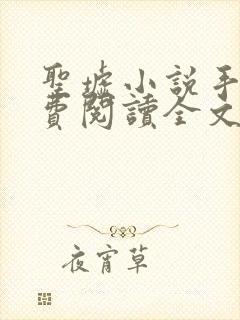 聖墟小說手
費閱讀全文
夜宵草